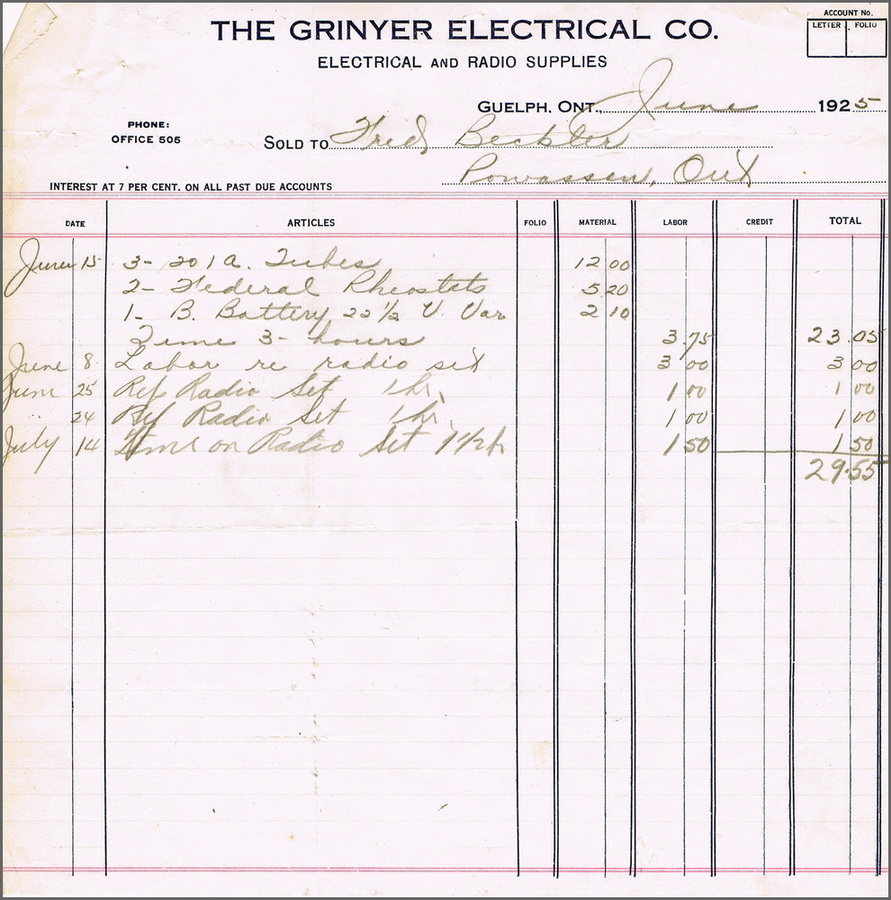 ACCOUNT No.
LETTER FOLIO
THE GRINYER ELECTRICAL CO.
ELECTRICAL AND RADIO SUPPLIES
GUELPH, ONT. June 1925
PHONE:
OFFICE 505
SOLD TO Fred Beckler
Powassen, Ont
INTEREST AT 7 PER CENT. ON ALL PAST DUE ACCOUNTS
DATE ARTICLES FOLIO MATERIAL LABOR CREDIT TOTAL
June 15 3- 201a. Tubes 12 00
2- Federal Rheostats 5 20
1- B. Battery 22 1/2 V. Var 2 10
Time 3- hours 3.75 23.05
June 8 Labor re radio set 3 00 3 00
June 25 Radio Set 1 hr. 1 00 1 00
" 24 Radio Set 1 hr. 1 00 1 00
July 14 Time on Radio Set 1 1/2 h 1 50 1 50
29.55